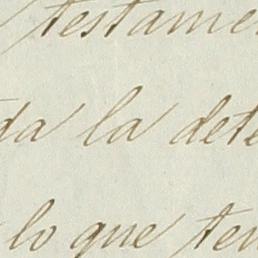 testame
da la dete
lo que ten